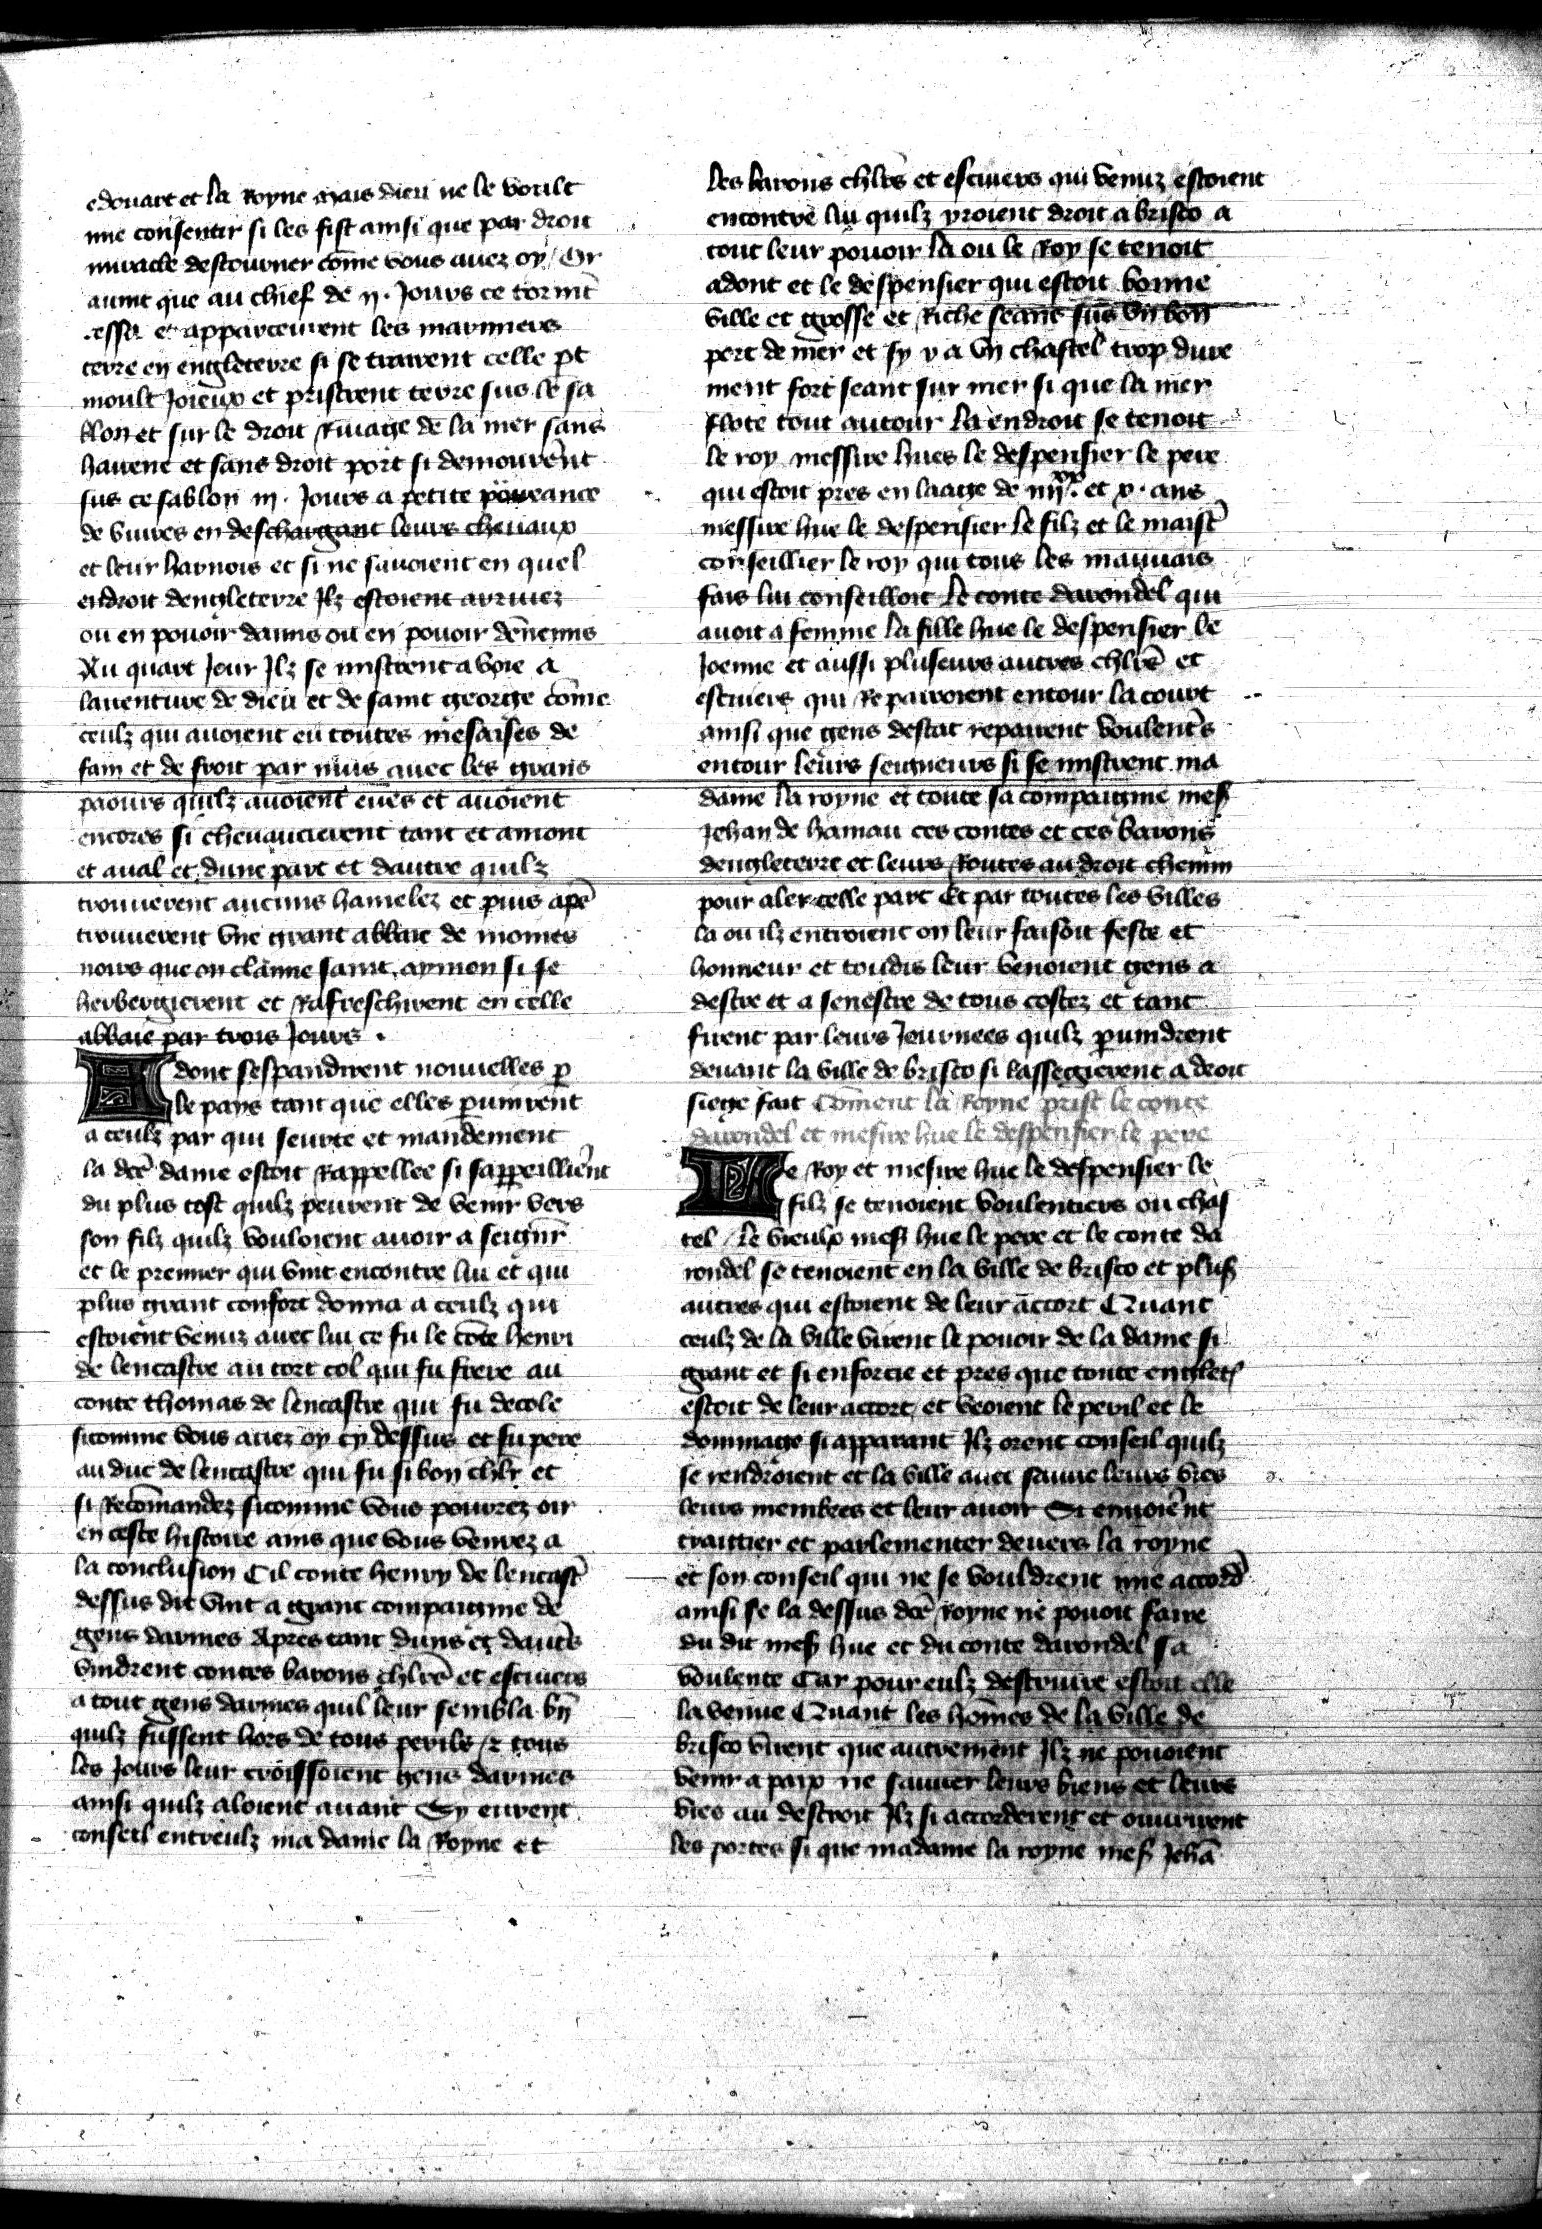 edouart et la Royne mais dieu ne le voult
mie consentir si les fist ainsi que par droit
miracle destourner cōme vous auez oy / Or
auint que au chief de ij. Jours ce tormt̄
cessa et apparceurent les maronniers
terre en engleterre si se trairent celle pt
moult Joieux et pristrent terre sus le sa
blon et sur le droit Riuage de la mer sans
hauene et sans droit port si demourerēt
sus ce sablon iij. Jours a petite poveance
de viures en deschargant leurs cheuaux
et leur harnois et si ne sauoient en quel
endroit dengleterre Ilz estoient arriuez
ou en pouoir damis ou en pouoir dēnemis
Au quart Jour Ilz se mistrent a voie a
lauenture de dieu et de saint george cōme
ceulz qui auoient eu toutes mesaises de
fain et de froit par nuis auec les grans
paours quilz auoient eues et auoient
encores si cheuaucierent tant et amont
et aual et dune part et dautre quilz
trouuerent aucuns hamelez et puis apē
trouuerent vne grant abbaie de moines
noirs que on clamme saint aymon si se
herbergierent et Rafreschirent en celle
abbaie par trois Jours .
Adont sespandirent nouuelles p̄
le pays tant que elles p̄uinrent
a ceulz par qui seurte et mandement
la dcē dame estoit Rappellee si sapp̄eillierēt
du plus tost quilz peurent de venir vers
son filz quilz vouloient auoir a seignr̄
et le premier qui vint encontre lui et qui
plus grant confort donna a ceulz qui
estoient venuz auec lui ce fu le cōte henri
de lencastre au tort col qui fu frere au
conte thomas de lencastre qui fu decole
sicomme vous auez oy cy dessus et fu pere
au duc de lencastre qui fu si bon chlr̄ et
si Recōmandez sicomme vous pourrez oir
en ceste histoire ains que vous venrez a
la conclusion Cil conte henry de lencast̄
dessus dit vint a grant compaignie de
gens darmes Apres tant duns et dautr̄s
vindrent contes barons chlr̄s et escuiers
a tout gens darmes quil leur sembla bn̄
quilz fussent hors de tous perils et tous
les Jours leur croissoient gens darmes
ainsi quilz aloient auant Sy eurent
conseil entreulz ma dame la Royne et
les barons chlr̄s et escuiers qui venuz estoient
encontre lui quilz yroient droit a bristo a
tout leur pouoir la ou le Roy se tenoit
adont et le despensier qui estoit bonne
ville et grosse et Riche seant sus vn bon
port de mer et sy y a vn chastel trop dure
ment fort seant sur mer si que la mer
flote tout autour la endroit se tenoit
le roy messire hues le despensier le pere
qui estoit pres en laage de iiijxx. et x. ans
messire hue le despensier le filz et le maist̄
conseillier le roy qui tous les mauuais
fais lui conseilloit Le conte darondel qui
auoit a femme la fille hue le despensier le
Joenne et aussi pluseurs autres chlr̄s et
escuiers qui Repairoient entour la court
ainsi que gens destat repairent voulentr̄s
entour leurs seigneurs si se mistrent ma
dame la royne et toute sa compaignie mess̄
Jehan de hainau ces contes et ces barons
dengleterre et leurs Routes au droit chemin
pour aler celle part Et par toutes les villes
la ou ilz entroient on leur faisoit feste et
honneur et toudis leur venoient gens a
destre et a senestre de tous costez et tant
firent par leurs Journees quilz p̄uindrent
deuant la ville de bristo si lassegierent a droit
siege fait Cōment la Royne prist le conte
darondel et mesire hue le despensier le pere
Le Roy et mesire hue le despensier le
filz se tenoient voulentiers ou chas
tel / Le vieulx mess̄ hue le pere et le conte da
rondel se tenoient en la ville de bristo et plus̄
autres qui estoient de leur accort Quant
ceulz de la ville virent le pouoir de la dame si
grant et si enforcie et pres que toute englet̄
estoit de leur accort et veoient le peril et le
dommage si apparant Ilz orent conseil quilz
se rendroient et la ville auec sauue leurs vies
leurs membres et leur auoir Si enuoierēt
traittier et parlementer deuers la royne
et son conseil qui ne se vouldrent mie accord̄
ainsi se la dessus dcē Royne ne pouoit faire
du dit mess̄ hue et du conte darondel sa
voulente Car pour eulz destruire estoit elle
la venue Quant les hōmes de la ville de
bristo virent que autrement Ilz ne pouoient
venir a paix ne sauuer leurs biens et leurs
vies au destroit Ilz si accorderent et ouurirent
les portes si que madame la royne mess̄ Jehā